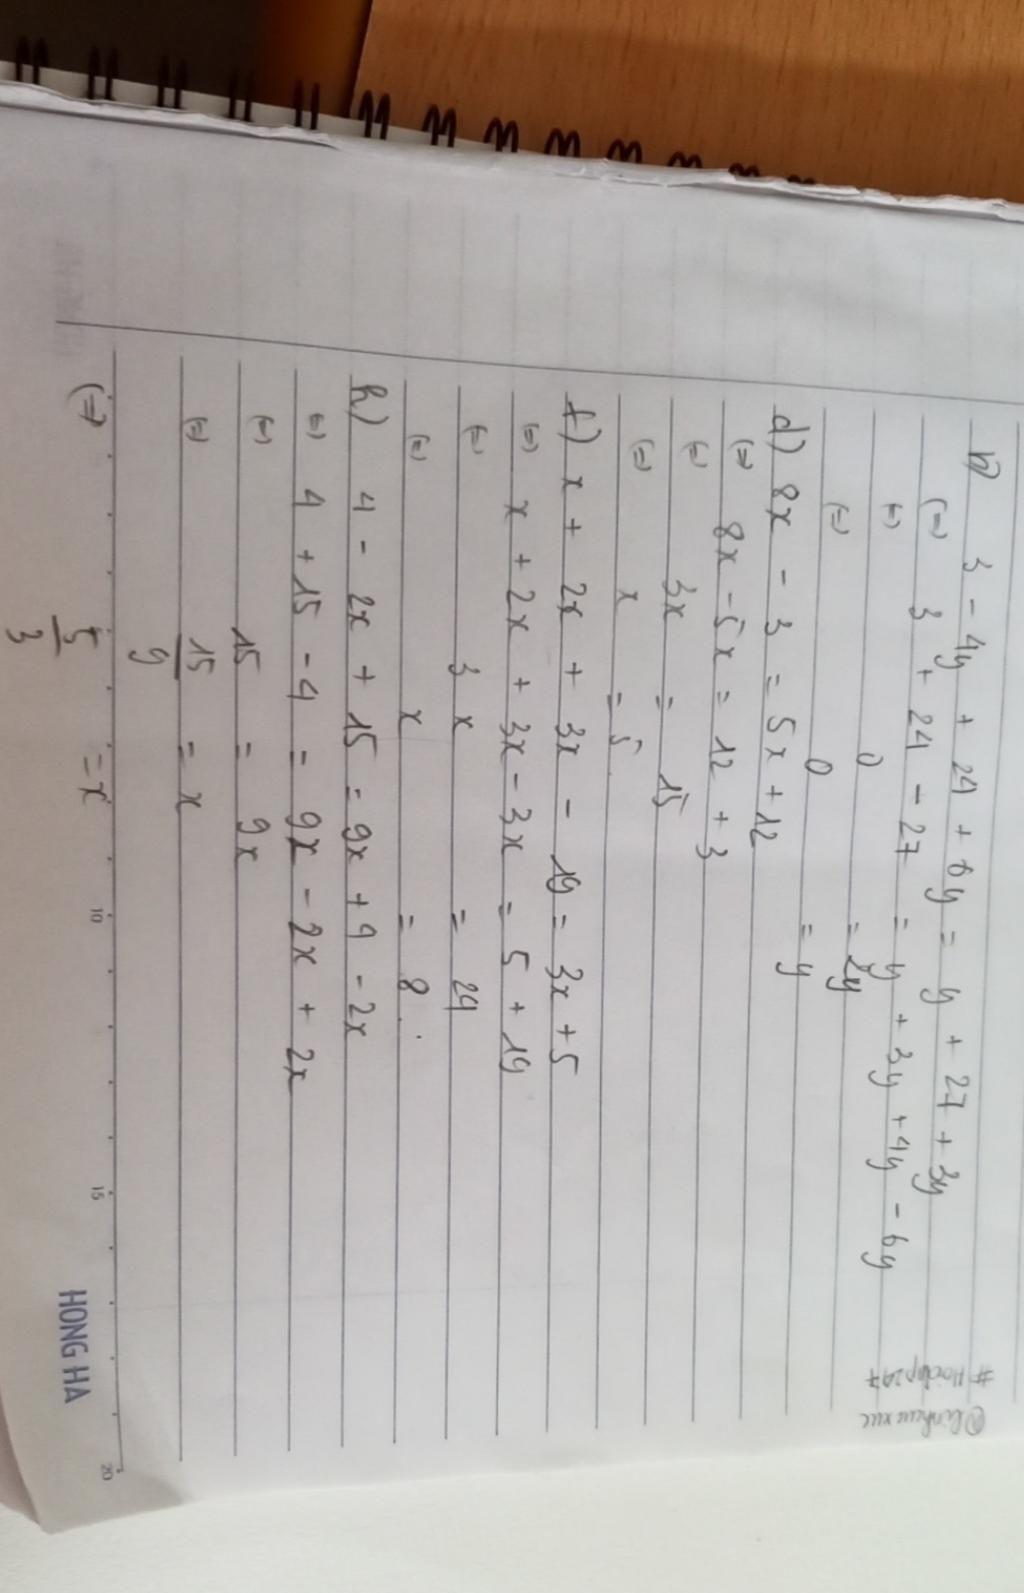 b) 3 - 4y + 24 + 6y = y + 27 + 3y
(=) 3 + 24 - 27 = y + 3y + 4y - 6y
(=) 0 = 2y
(=) 0 = y
d) 8x - 3 = 5x + 12
(=) 8x - 5x = 12 + 3
(=) 3x = 15
(=) x = 5
f) x + 2x + 3x - 19 = 3x + 5
(=) x + 2x + 3x - 3x = 5 + 19
(=) 3x = 24
(=) x = 8.
h) 4 - 2x + 15 = 9x + 4 - 2x
(=) 4 + 15 - 4 = 9x - 2x + 2x
(=) 15 = 9x
(=) 15/9 = x
(=) 5/3 = x
10 15 20
HONG HA
#Hoidap247